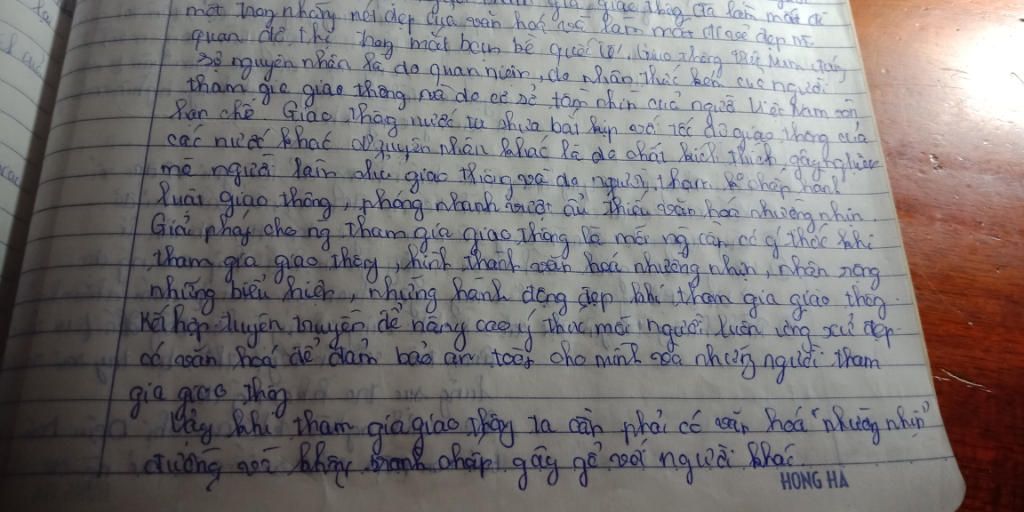 một trong những nét đẹp của văn hoá và làm mất đi vẻ đẹp
quan đô thị hay mất bạn bè quốc tế. Giao thông Việt Nam
Số nguyên nhân là do quan niệm, do nhận thức kém của người
tham gia giao thông và do có sẻ tầm nhìn của người Việt Nam còn
hạn chế Giao thông nước ta chưa bắt kịp với tốc độ giao thông của
các nước khác nguyên nhân khác là do chất kích thích gây nghiện
mà người làm chủ giao thông và do người tham k° chấp hành
luật giao thông, phóng nhanh vượt ẩu thiếu văn hoá nhường nhịn.
Giải pháp cho ng tham gia giao thông là mỗi ng cần có ý thức khi
tham gia giao thông, hình thành văn hoá nhường nhịn, nhân rộng
những biểu hiện, những hành động đẹp khi tham gia giao thông.
Kết hợp tuyên truyền để nâng cao ý thức mỗi người luôn ứng xử đẹp
có văn hoá để đảm bảo an toàn cho mình và những người tham
gia giao thông
Vậy khi tham gia giao thông ta cần phải có văn hoá "nhường nhịn"
đường và không tranh chấp gây gổ với người khác.
HONG HA